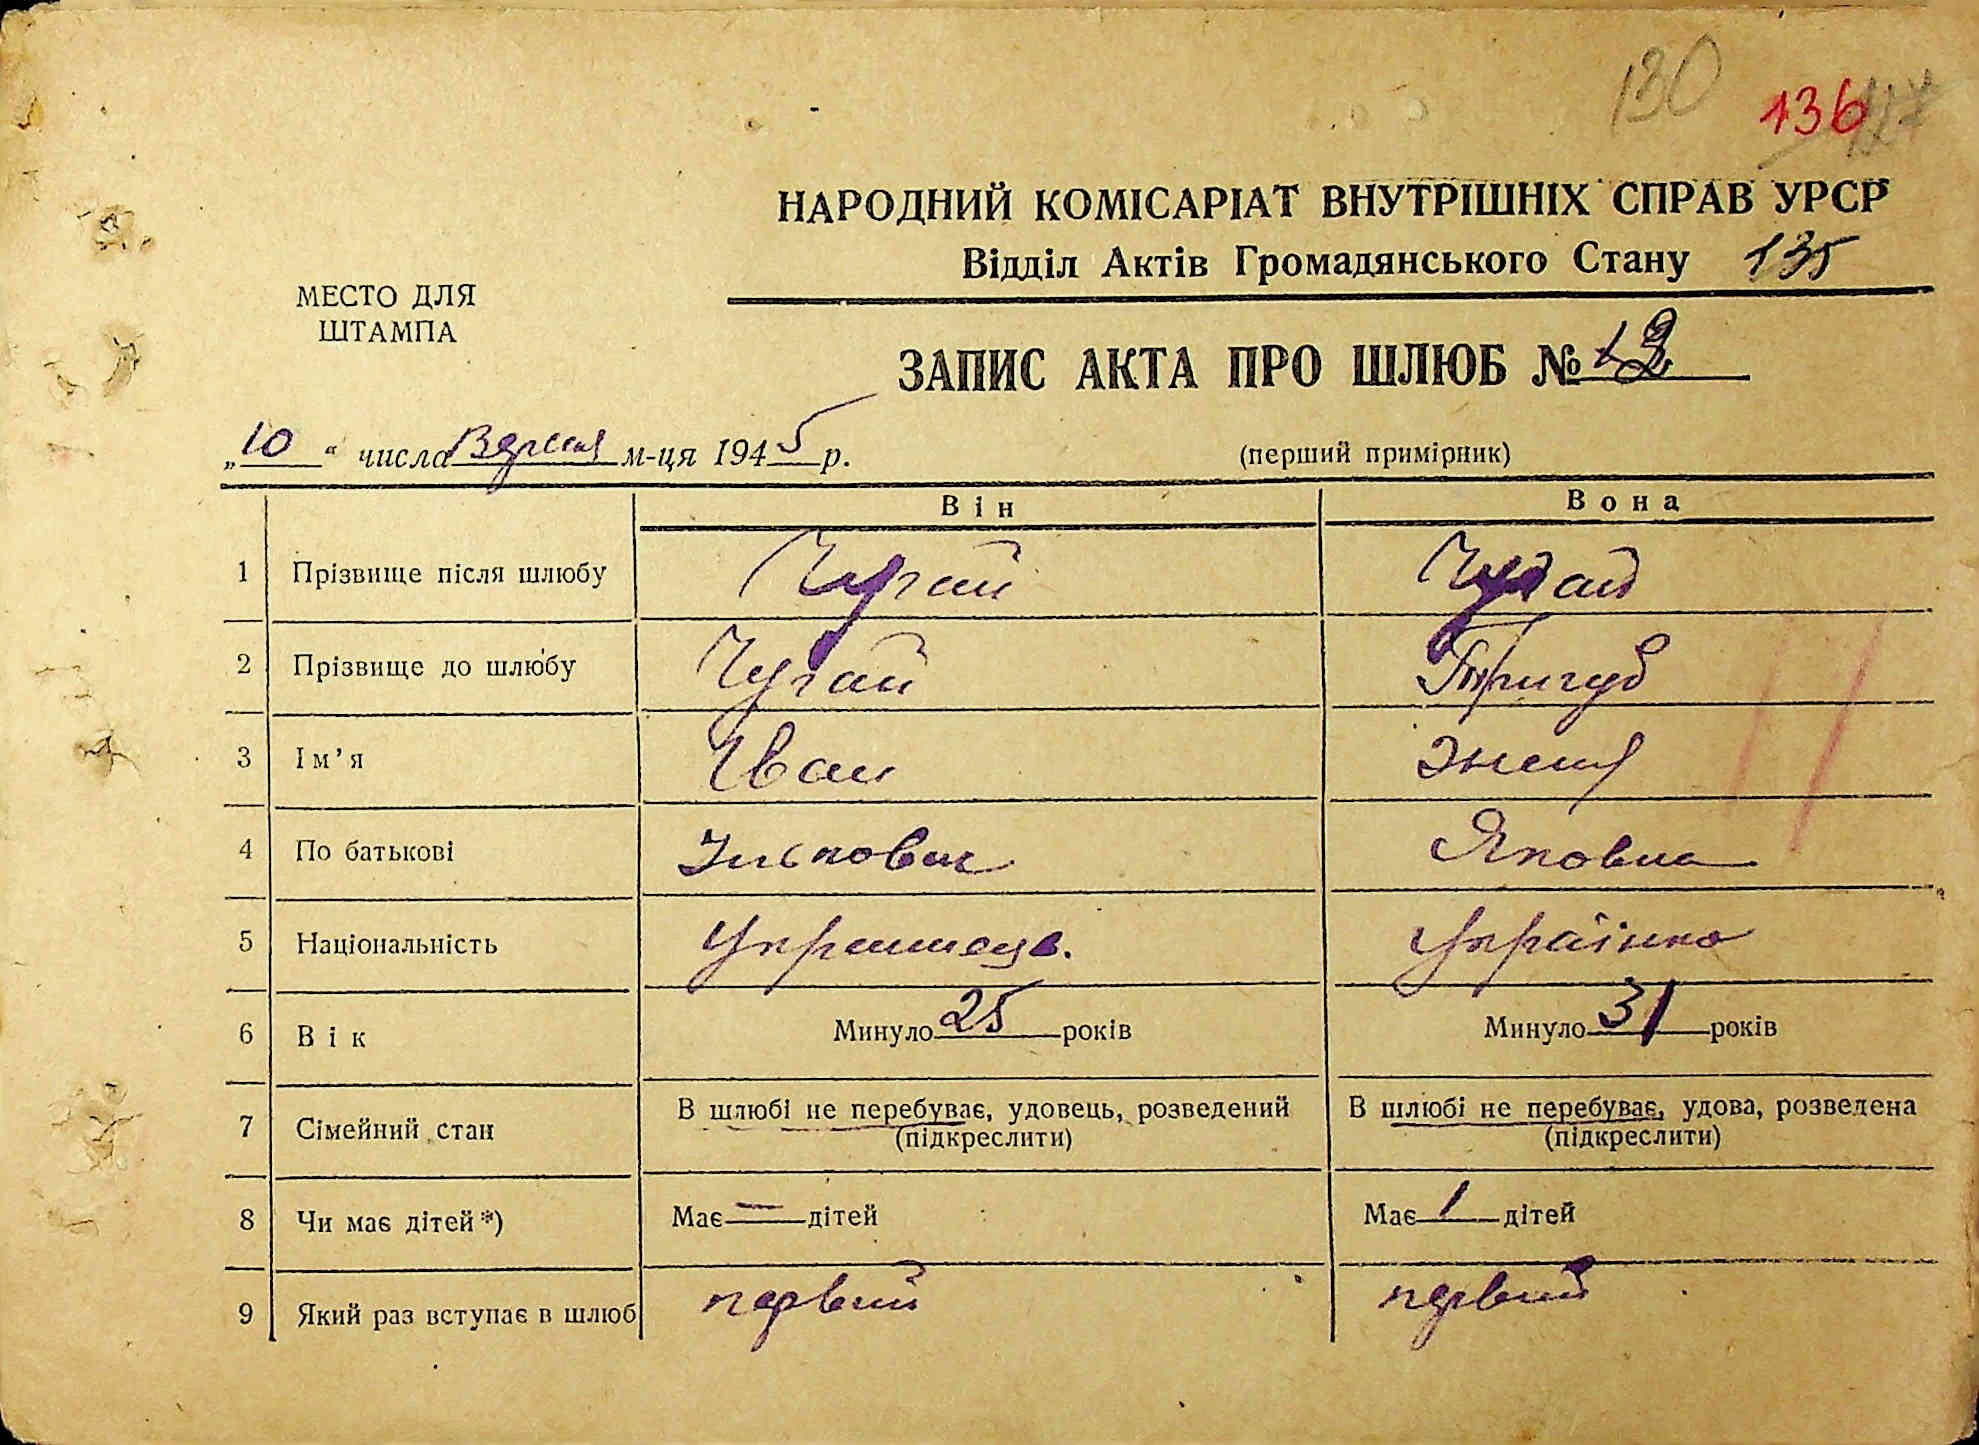 130 136 127
НАРОДНИЙ КОМІСАРІАТ ВНУТРІШНІХ СПРАВ УРСР
Відділ Актів Громадянського Стану 135
МЕСТО ДЛЯ
ШТАМПА
ЗАПИС АКТА ПРО ШЛЮБ № 12
„10“ числа Вересня м-ця 1945 р. (перший примірник)
Він Вона
1 Прізвище після шлюбу Чугай Чугай
2 Прізвище до шлюбу Чугай Тригуб
3 Ім'я Іван
4 По батькові Ількович Яковна
5 Національність Українець. Українка
6 Вік Минуло 25 років Минуло 31 років
7 Сімейний стан В шлюбі не перебуває, удовець, розведений В шлюбі не перебуває, удова, розведена
(підкреслити) (підкреслити)
8 Чи має дітей*) Має — дітей Має 1 дітей
9 Який раз вступає в шлюб первий первий